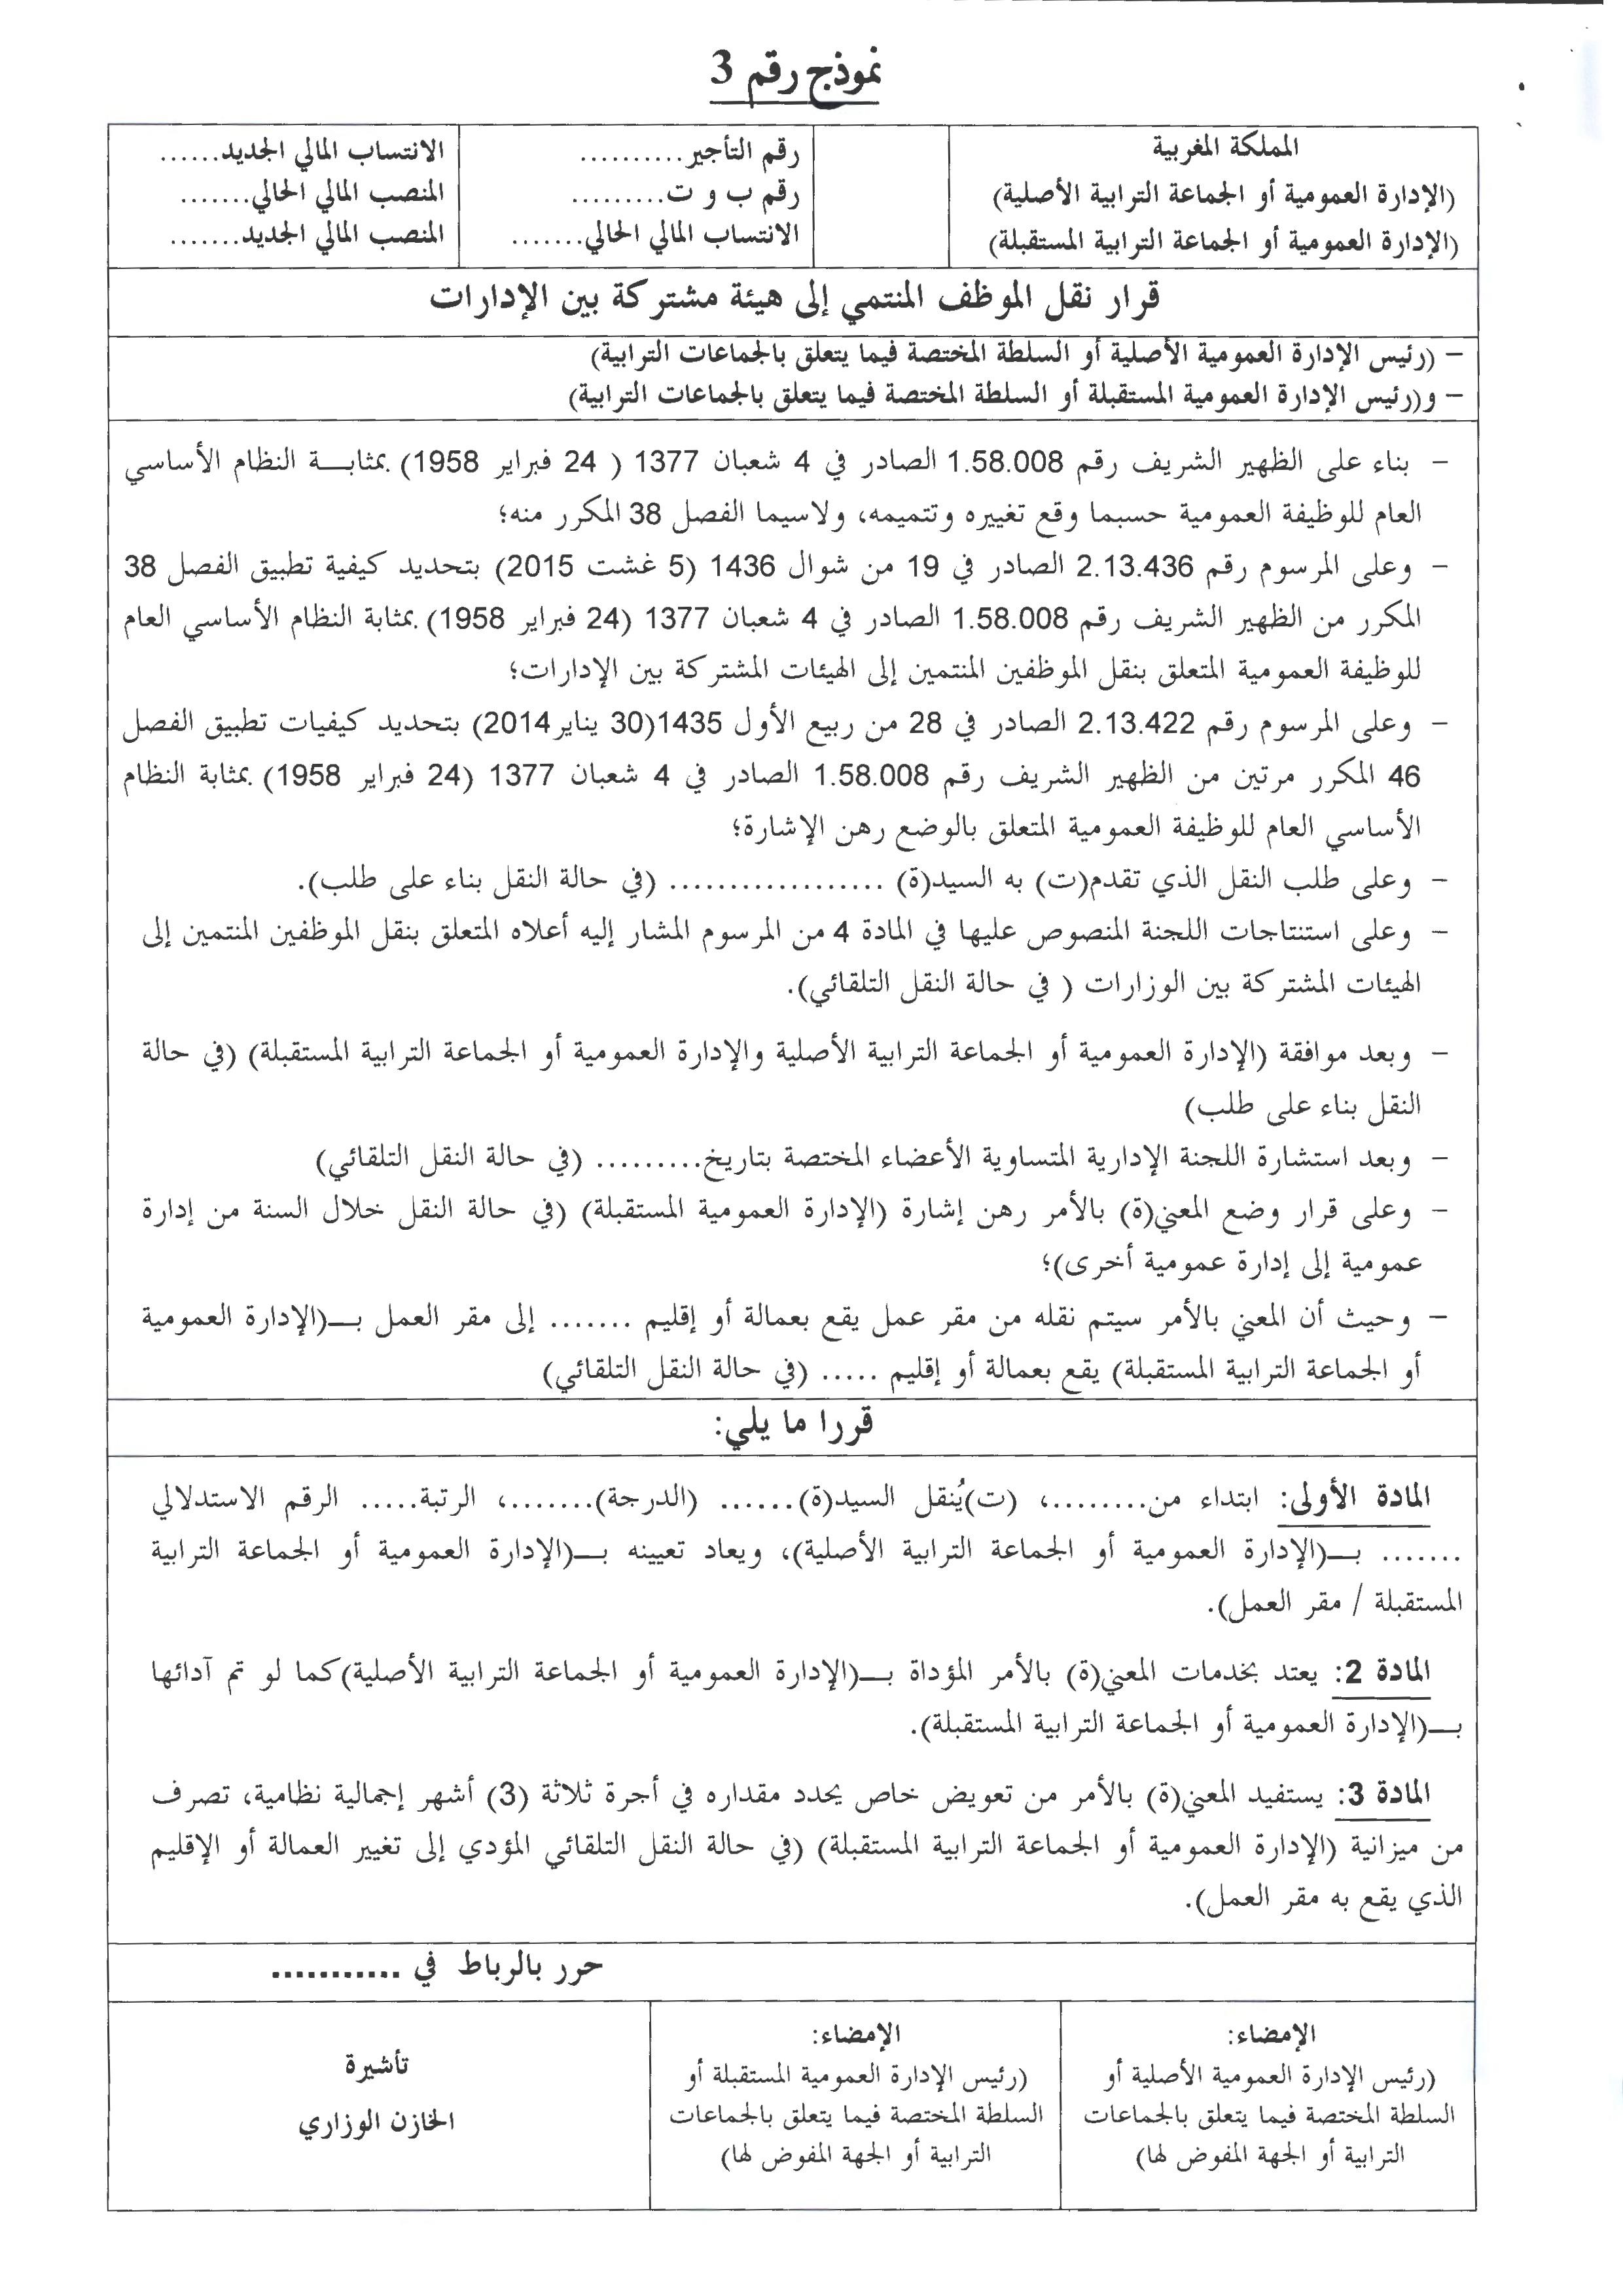 نموذج رقم 3
المملكة المغربية
(الإدارة العمومية أو الجماعة الترابية الأصلية)
(الإدارة العمومية أو الجماعة الترابية المستقبلة)
رقم التأجير..........
رقم ب و ت.........
الانتساب المالي الحالي.......
الانتساب المالي الجديد......
المنصب المالي الحالي.......
المنصب المالي الجديد.......
قرار نقل الموظف المنتمي إلى هيئة مشتركة بين الإدارات
– (رئيس الإدارة العمومية الأصلية أو السلطة المختصة فيما يتعلق بالجماعات الترابية)
– و(رئيس الإدارة العمومية المستقبلة أو السلطة المختصة فيما يتعلق بالجماعات الترابية)
– بناء على الظهير الشريف رقم 1.58.008 الصادر في 4 شعبان 1377 ( 24 فبراير 1958) بمثابـــة النظام الأساسي
العام للوظيفة العمومية حسبما وقع تغييره وتتميمه، ولاسيما الفصل 38 المكرر منه؛
– وعلى المرسوم رقم 2.13.436 الصادر في 19 من شوال 1436 (5 غشت 2015) بتحديد كيفية تطبيق الفصل 38
المكرر من الظهير الشريف رقم 1.58.008 الصادر في 4 شعبان 1377 (24 فبراير 1958) بمثابة النظام الأساسي العام
للوظيفة العمومية المتعلق بنقل الموظفين المنتمين إلى الهيئات المشتركة بين الإدارات؛
– وعلى المرسوم رقم 2.13.422 الصادر في 28 من ربيع الأول 1435(30 يناير2014) بتحديد كيفيات تطبيق الفصل
46 المكرر مرتين من الظهير الشريف رقم 1.58.008 الصادر في 4 شعبان 1377 (24 فبراير 1958) بمثابة النظام
الأساسي العام للوظيفة العمومية المتعلق بالوضع رهن الإشارة؛
– وعلى طلب النقل الذي تقدم(ت) به السيد(ة) .................. (في حالة النقل بناء على طلب).
– وعلى استنتاجات اللجنة المنصوص عليها في المادة 4 من المرسوم المشار إليه أعلاه المتعلق بنقل الموظفين المنتمين إلى
الهيئات المشتركة بين الوزارات ( في حالة النقل التلقائي).
– وبعد موافقة (الإدارة العمومية أو الجماعة الترابية الأصلية والإدارة العمومية أو الجماعة الترابية المستقبلة) (في حالة
النقل بناء على طلب)
– وبعد استشارة اللجنة الإدارية المتساوية الأعضاء المختصة بتاريخ......... (في حالة النقل التلقائي)
– وعلى قرار وضع المعني(ة) بالأمر رهن إشارة (الإدارة العمومية المستقبلة) (في حالة النقل خلال السنة من إدارة
عمومية إلى إدارة عمومية أخرى)؛
– وحيث أن المعني بالأمر سيتم نقله من مقر عمل يقع بعمالة أو إقليم ....... إلى مقر العمل بـــ(الإدارة العمومية
أو الجماعة الترابية المستقبلة) يقع بعمالة أو إقليم ..... (في حالة النقل التلقائي)
قررا ما يلي:
المادة الأولى: ابتداء من.........، (ت)يُنقل السيد(ة)...... (الدرجة).......، الرتبة..... الرقم الاستدلالي
....... بـــ(الإدارة العمومية أو الجماعة الترابية الأصلية)، ويعاد تعيينه بـــ(الإدارة العمومية أو الجماعة الترابية
المستقبلة / مقر العمل).
المادة 2: يعتد بخدمات المعني(ة) بالأمر المؤداة بـــ(الإدارة العمومية أو الجماعة الترابية الأصلية)كما لو تم آدائها
بـــ(الإدارة العمومية أو الجماعة الترابية المستقبلة).
المادة 3: يستفيد المعني(ة) بالأمر من تعويض خاص يحدد مقداره في أجرة ثلاثة (3) أشهر إجمالية نظامية، تصرف
من ميزانية (الإدارة العمومية أو الجماعة الترابية المستقبلة) (في حالة النقل التلقائي المؤدي إلى تغيير العمالة أو الإقليم
الذي يقع به مقر العمل).
حرر بالرباط في ...........
الإمضاء:
(رئيس الإدارة العمومية الأصلية أو
السلطة المختصة فيما يتعلق بالجماعات
الترابية أو الجهة المفوض لها)
الإمضاء:
(رئيس الإدارة العمومية المستقبلة أو
السلطة المختصة فيما يتعلق بالجماعات
الترابية أو الجهة المفوض لها)
تأشيرة
الخازن الوزاري